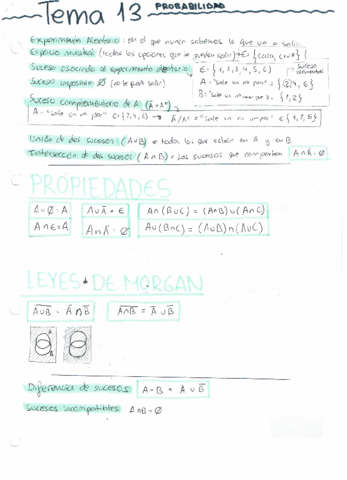 Tema 13 PROBABILIDAD
Experimento Aleatorio: en el que nunca sabemos lo que va a salir.
Espacio muestral (todas las opciones que se pueden salir) E = {cara, cruz}
Suceso asociado al experimento aleatorio: E = {1, 2, 3, 4, 5, 6} Suceso elemental
Suceso imposible: Ø (no le puede salir) A = "sale un no par" = {2, 4, 6}
Suceso complementario de A
A = "sale un no par"
Unión de dos sucesos (A∪B) = todo lo que están en A y en B
Intersección de dos sucesos (A∩B) = los sucesos que comparten A∩Ā = Ø
PROPIEDADES
A∪Ā = E A∩(B∪C) = (A∩B)∪(A∩C)
A∩E = A A∩Ā = Ø A∪(B∩C) = (A∪B)∩(A∪C)
LEYES DE MORGAN
A̅∪̅B̅ = Ā∩B̅ A̅∩̅B̅ = Ā∪B̅
Diferencia de sucesos: A-B = A∪B̅
Sucesos incompatibles: A∩B = Ø